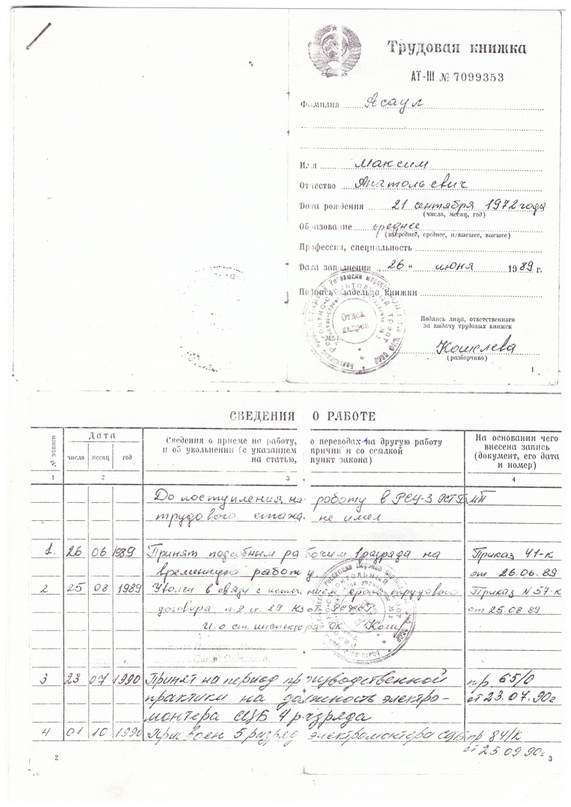 Трудовая книжка
АТ-III № 7099353
Фамилия Ясаул
Имя Максим
Отчество Анатольевич
Дата рождения 21 сентября 1972 года
(число, месяц, год)
Образование среднее
Профессия, специальность
Дата заполнения „26“ июня 1989 г.
Подпись владельца книжки
Отдел кадров
Подпись лица, ответственного
за выдачу трудовых книжек
Кошелева
(разборчиво)
1
СВЕДЕНИЯ О РАБОТЕ
№ записи
Дата
число месяц год
Сведения о приеме на работу, о переводах на другую работу
и об увольнении (с указанием причин и со ссылкой
на статью, пункт закона)
На основании чего
внесена запись
(документ, его дата
и номер)
1 2 3 4
До поступления на работу в РСУ-3
трудового стажа не имел
1. 26 06 1989 Принят подсобным рабочим 1 разряда на Приказ 41-к
временную работу. от 26.06.89
2 25 08 1989 Уволен в связи с срока трудового Приказ N 57-к
договора п.2 ст. 29 от 25.08.89
И.о ст. инспектора ОК
3 23 07 1990 Принят на период производственной пр 65/0
практики на должность электро- от 23.07.90г
монтера СЦБ 4 разряда
4 01 10 1990 Присвоен 5 разряд электромонтера СЦБ пр 84/к
от 25.09.90г
2 3